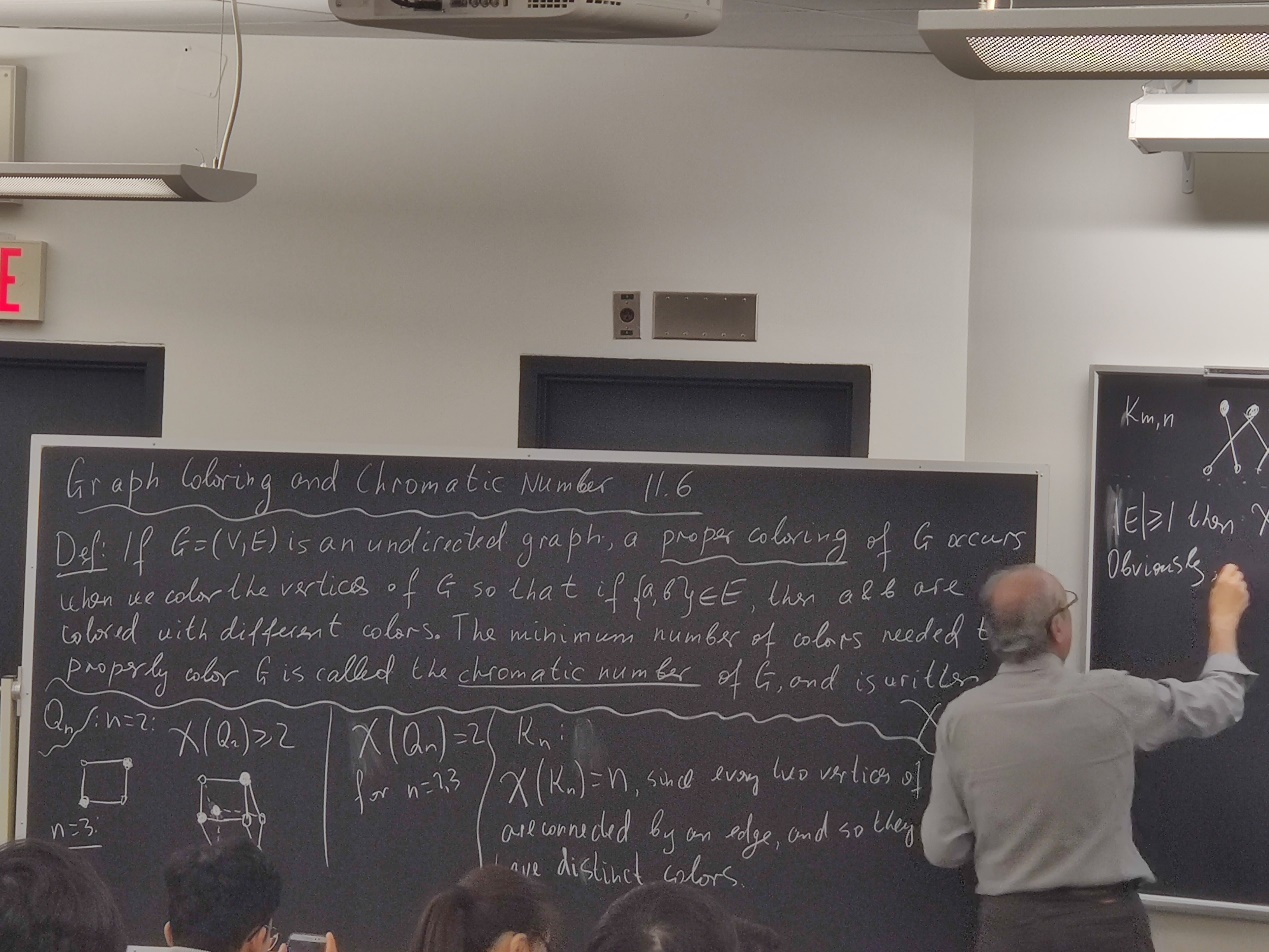 E
Graph Coloring and Chromatic Number 11.6
Def: If G=(V,E) is an undirected graph, a proper coloring of G occurs
when we color the vertices of G so that if {a,b}∈E, then a & b are
colored with different colors. The minimum number of colors needed t
properly color G is called the chromatic number of G, and is written
χ
Qn: n=2: χ(Q₂)≥2
n=3:
χ(Qn)=2
for n=2,3
Kn:
χ(Kn)=n, since every two vertices of
are connected by an edge, and so they
have distinct colors.
Km,n
|E|≥1 then χ
Obviously